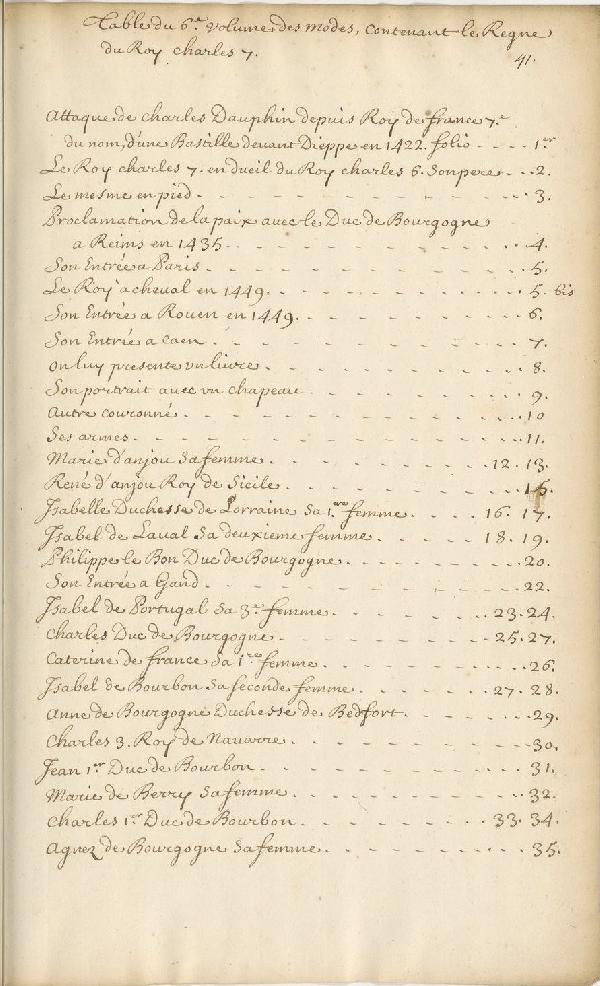 Table du 6.e volume des modes, contenant le Regne
du Roy charles 7.
41.
Attaque de charles Dauphin depuis Roy de france 7.e
du nom, d'une Bastille devant Dieppe en 1422. folio - - - - 1.er
Le Roy charles 7. en dueil du Roy charles 6. son pere - - - 2.
Le mesme en pied - - - 3.
Proclamation de la paix avec le Duc de Bourgogne
a Reims en 1435 - - - 4.
Son Entrée a Paris - - - 5.
Le Roy a cheval en 1449 - - - 5. bis
Son Entrée a Rouen en 1449 - - - 6.
Son Entrée a Caen - - - 7.
on luy presente un livre - - - 8.
Son portrait avec un chapeau - - - 9.
autre couronné - - - 10
Ses armes - - - 11.
Marie d'anjou sa femme - - - 12. 13.
René d'anjou Roy de Sicile - - -
Isabelle Duchesse de Lorraine sa 1.ere femme - - - 16. 17.
Isabel de Laval sa deuxieme femme - - - 18. 19.
Philippe le Bon Duc de Bourgogne - - - 20.
Son Entrée a Gand - - - 22.
Isabel de Portugal sa 3.e femme - - - 23. 24.
Charles Duc de Bourgogne - - - 25. 27.
Caterine de france sa 1.re femme - - - 26.
Isabel de Bourbon sa seconde femme - - - 27. 28.
Anne de Bourgogne Duchesse de Bedfort - - - 29.
Charles 3. Roy de Navarre - - - 30.
Jean 1.er Duc de Bourbon - - - 31.
Marie de Berry sa femme - - - 32.
Charles 1.er Duc de Bourbon - - - 33. 34.
Agnez de Bourgogne sa femme - - - 35.